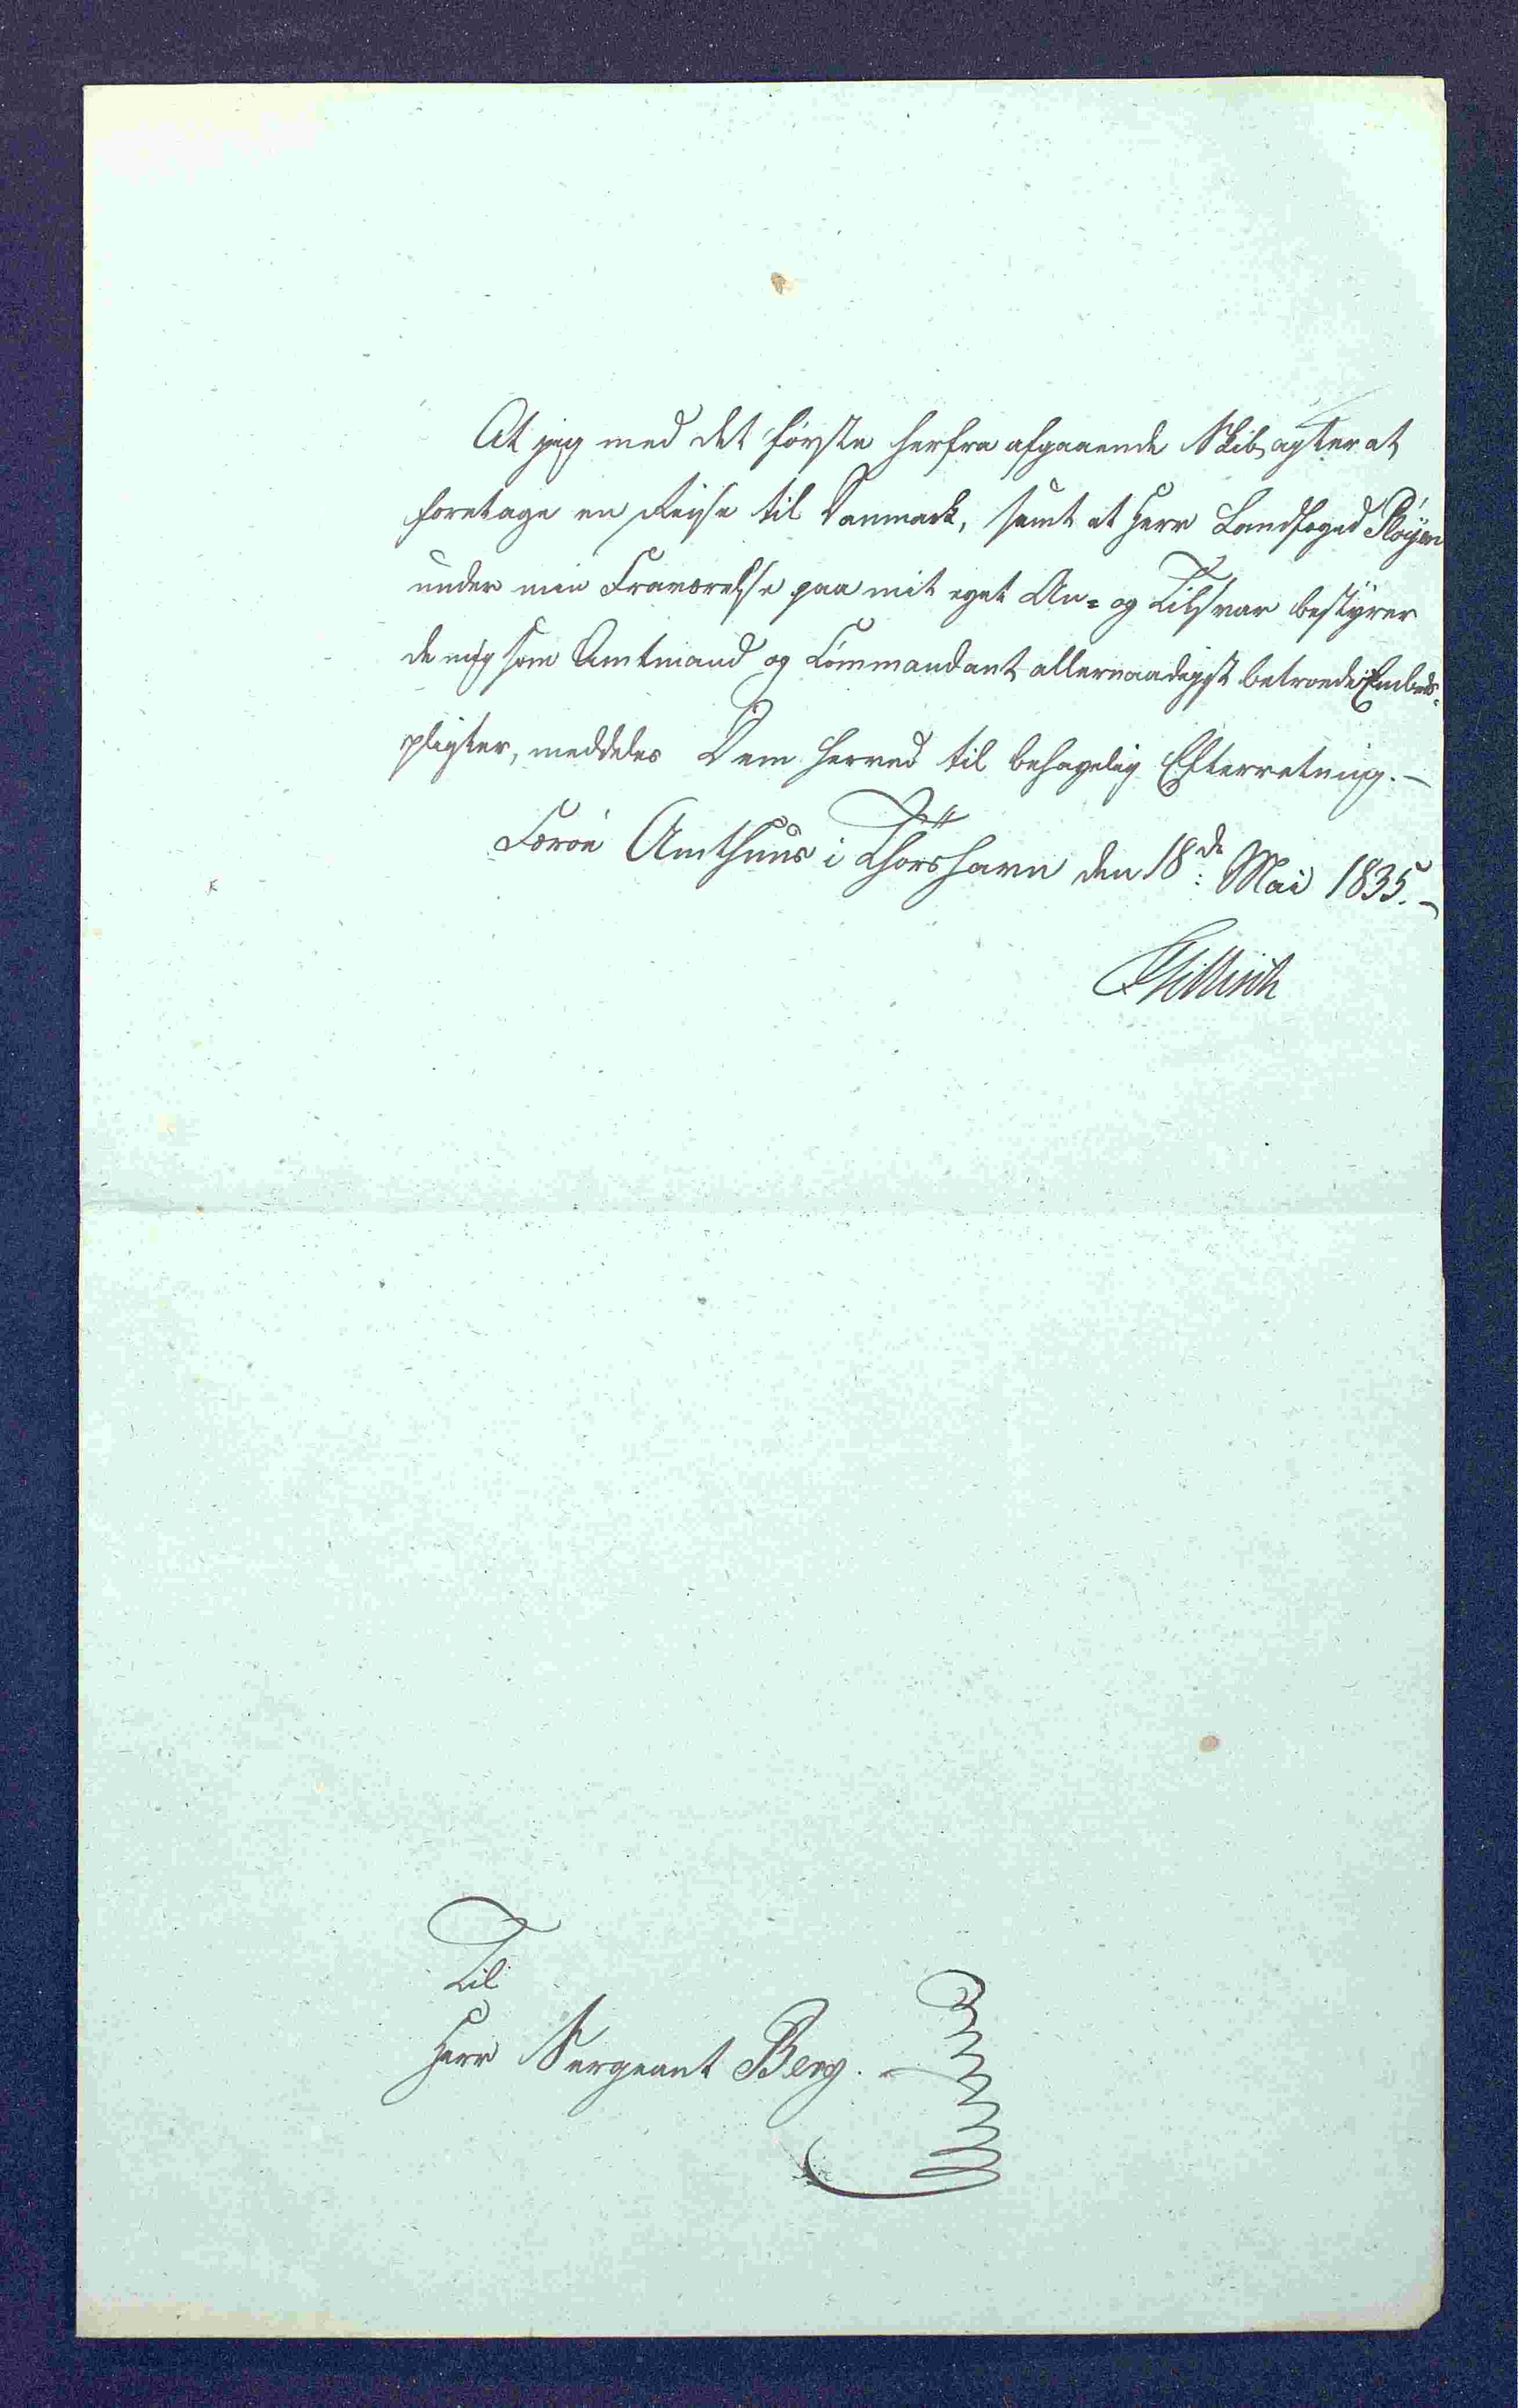 At jeg med det første herfra afgaaende Skib agter at
foretage en Reise til Danmark, samt at Herr Landfoged Pløyen
under min Fraværelse paa mit eget An= og Tilsvar bestyrer
de mig som Amtmand og Commandant allernaadigst betroede Embeds-
pligter, meddeles Dem herved til behagelig Efterretning. —
Færøe Amthuus i Thorshavn den 18de Mai 1835. —
FTillisch
Til
Herr Sergeant Berg. —